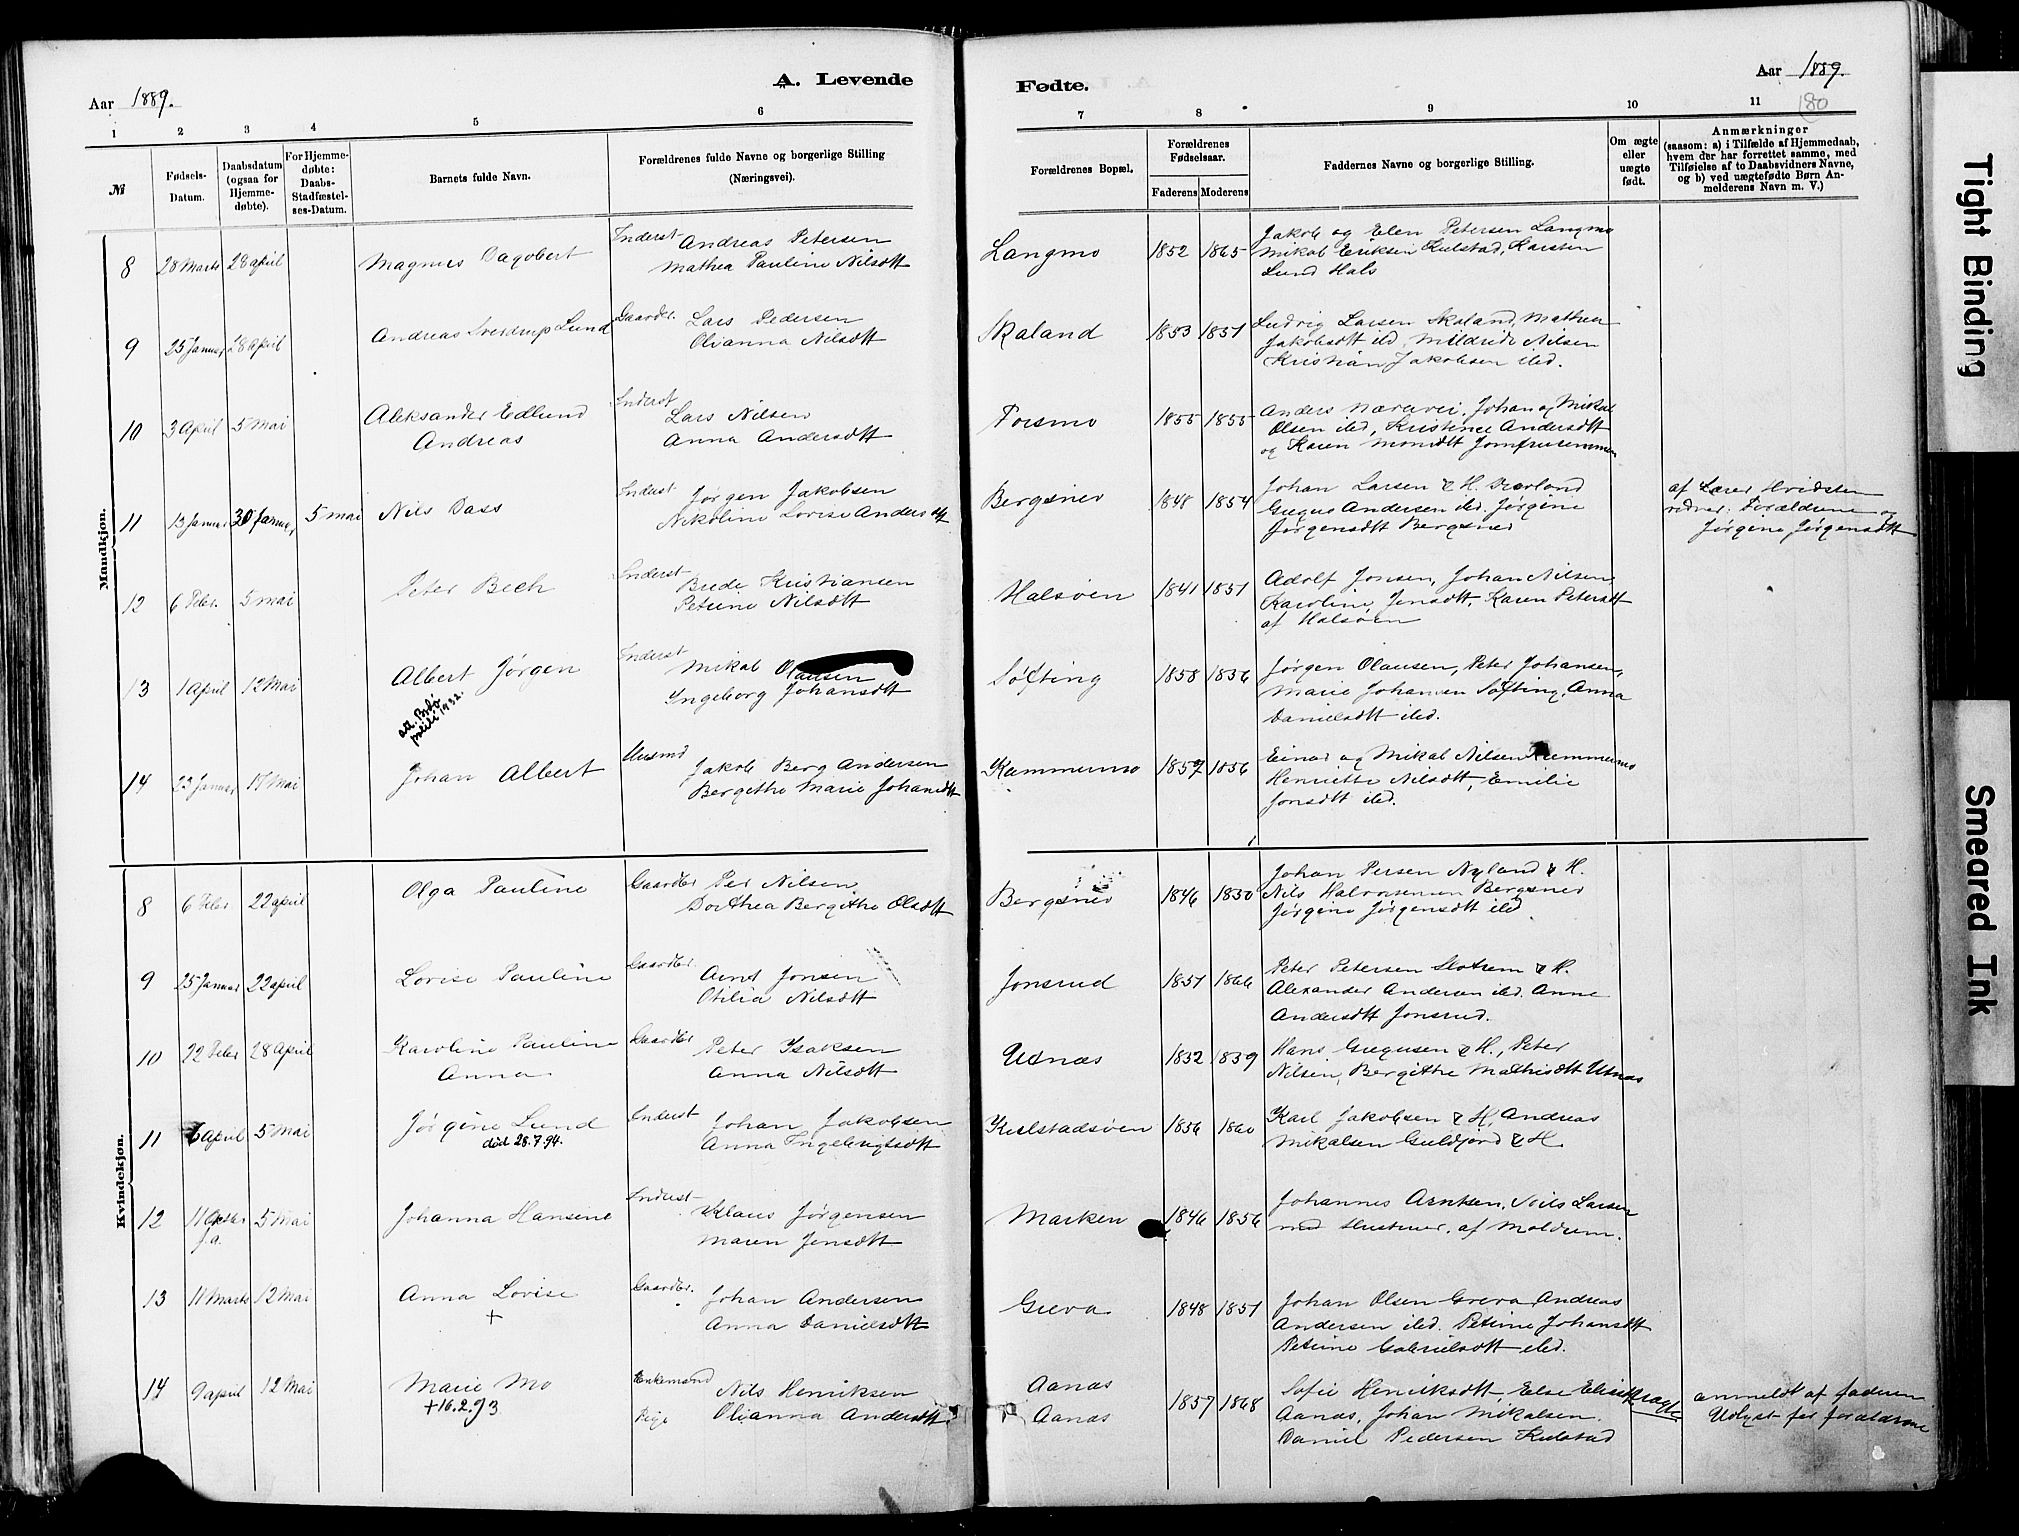 Aar 1889.
A. Levende
Fødte.
Aar 1889.
180
1 2 3 4 5 6 7 8 9 10 11
№
Fødsels-Datum.
Daabsdatum (ogsaa for Hjemme-døbte).
For Hjemme-døbte: Daabs-Stadfæstel-ses-Datum.
Barnets fulde Navn.
Forældrenes fulde Navne og borgerlige Stilling
(Næringsvei).
Forældrenes Bopæl.
Forældrenes Fødselsaar.
Faderens Moderens
Faddernes Navne og borgerlige Stilling.
Om ægte eller uægte født.
Anmærkninger
(saasom: a) i Tilfælde af Hjemmedaab,
hvem der har forrettet samme, med
Tilføielse af to Daabsvidners Navne,
og b) ved uægtefødte Børn An-
melderens Navn m. V.)
Mandkjøn.
8 28 Marts 28 april Magnus Dagobert Inderst Andreas Petersen
Mathea Pauline Nilsdtt
Langmo 1852 1865 Jakob og Elen Petersen Langmo
Mikal Eriksen Kulstad, Karsten
Lund Hals
9 25 Januar 28 april Andreas Sverdrup Lund Gaardbr. Lars Pedersen
Olianna Nilsdtt
Skaland 1853 1851 Ludvig Larsen Skaland, Mathea
Jakobsdtt ibd, Mildride Nilsen
Kristian Jakobsen ibd.
10 3 April 5 Mai Aleksander Edlund
Andreas
Inderst Lars Nilsen
Anna Andersdtt
Forsmo 1855 1855 Anders Nærvei, Johan og Mikal
Olsen ibd, Kristine Andersdtt
og Karen Monsdtt
11 13 Januar 30 Januar 5 mai Nils Dass Inderst Jørgen Jakobsen
Nikoline Lovise Andersdtt
Bergsnev 1848 1854 Johan Larsen & H.
Andersen ibd. Jørgine
Jørgensdtt Bergsnev
af Lærer Hvidsten
Forældrene og
Jørgine Jørgensdtt
12 6 Febr. 5 mai Peter Bech Inderst Brede Kristiansen
Petrine Nilsdtt
Halsøen 1841 1851 Adolf Jonsen, Johan Nilsen,
Karoline Jensdtt, Karen Petersdtt
af Halsøen
13 1 April 12 Mai Albert Jørgen
att. Bodø
politi 1932.
Inderst Mikal Olausen
Ingeborg Johansdtt
Søfting 1858 1856 Jørgen Olausen, Peter Johansen,
Marie Johansen Søfting, Anna
Danielsdtt ibd.
14 23 Januar 17 Mai Johan Albert Husmd Jakob Berg Andersen
Bergithe Marie Johansdtt
Kammermo 1857 1856 Einar og Mikal Nilsen Kammermo
Henriette Nilsdtt, Emilie
Jonsdtt ibd.
Kvindekjøn.
8 6 Febr 22 april Olga Pauline Gaardbr Per Nilsen
Dorthea Bergithe Olsdtt
Bergsnev 1846 1850 Johan Persen Nyland & H.
Nils Halvorsen Bergsnev
Jørgine Jørgensdtt ibd.
9 25 Januar 22 april Lovise Pauline Gaardbr Arnt Jonsen
Otilia Nilsdtt
Jonsrud 1851 1866 Peter Petersen Slotrem & H.
Alexander Andersen ibd. Anne
Andersdtt Jonsrud.
10 22 Febr 28 April Karoline Pauline
Anna
Gaardbr Peter Isaksen
Anna Nilsdtt
Utnæs 1832 1839 Hans Gregusen & H., Peter
Nilsen, Bergithe Mathisdtt Utnæs
11 6 April 5 Mai Jørgine Lund
død 28.7.94.
Inderst Johan Jakobsen
Anna Ingebrigtsdtt
Kulstadsøen 1856 1860 Karl Jakobsen & H, Andreas
Mikalsen Guldfjord & H.
12 11 Oktbr f.a. 5 Mai Johanna Hansine Inderst Klaus Jørgensen
Maren Jensdtt
Marken 1846 1856 Johannes Arntsen, Nils Larsen
med Hustruer, af Moldrem.
13 11 Marts 12 Mai Anna Lovise
+
Gaardbr. Johan Andersen
Anna Danielsdtt
Greva 1848 1851 Johan Olsen Greva, Andreas
Andersen ibd. Petrine Johansdtt
Petrine Gabrielsdtt ibd.
14 9 april 12 Mai Marie Mo
+ 16.2.93
Enkemand Nils Henriksen
Pige Olianna Andersdtt
Aanæs
Aanæs
1857 1868 Sofie Henriksdtt Else
Aanæs, Johan Mikalsen.
Daniel Pedersen Kulstad
uægte
anmeldt af faderen
Udlyst for forældrene
Tight Binding
Smeared Ink